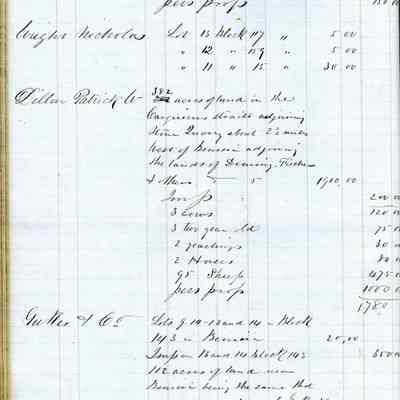 pers prop
Wright Nicholas Lot 13 Block 117 " 5.00
" 12 " 159 " 5.00
" 11 " 15 " 30.00
Dillon Patrick W 382 acres of land in the
Carquinez straits adjoining
Stone Quarry about 2½ miles
West of Benicia adjoining
the lands of Fischer
& 1910.00
Imp 200.0
3 Cows 120.0
3 two year old 75.0
2 yearlings 30.0
2 Horses 80.0
95 Sheep 475.0
pers prop 1000.0
5780
& Co Lots 9 14-13 and 14 in Block
143 in Benicia 20.00
Imp on 13 and 14 Block 143 3500
112 acres of land near
Benicia being the same that